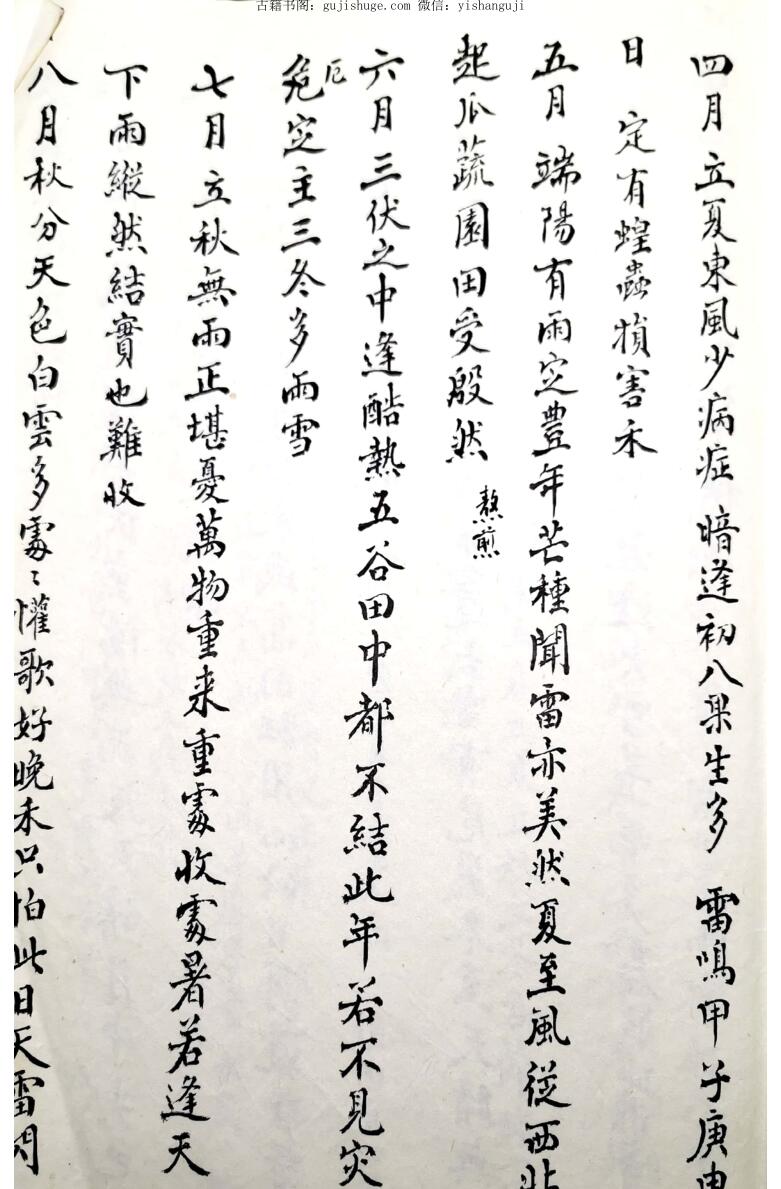 古籍书阁：gujishuge.com 微信：yishanguji
四月立夏東風少病症 暗逢初八果生多 雷鳴甲子庚申
日 定有蝗蟲損害禾
五月端陽有雨定豊年芒種聞雷亦美然夏至風從西北
起瓜蔬園田受殷然 熬煎
六月三伏之中逢酷熱五谷田中都不結此年若不見災
厄
危定主三冬多雨雪
七月立秋無雨正堪憂萬物重来重處收處暑若逢天
下雨縱然結實也難收
八月秋分天色白雲多處〻懽歌好晚禾只怕此日天雷閃